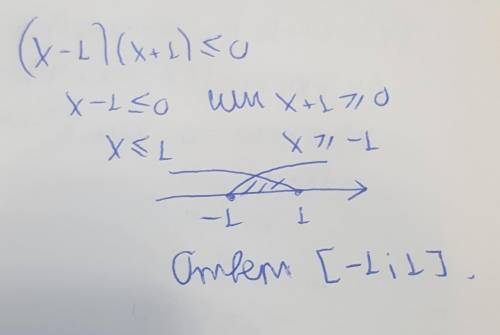 (x-1)(x+1)≤0
x-1≤0 или x+1⩾0
x≤1 x⩾-1
-1 1
Ответ [-1;1].